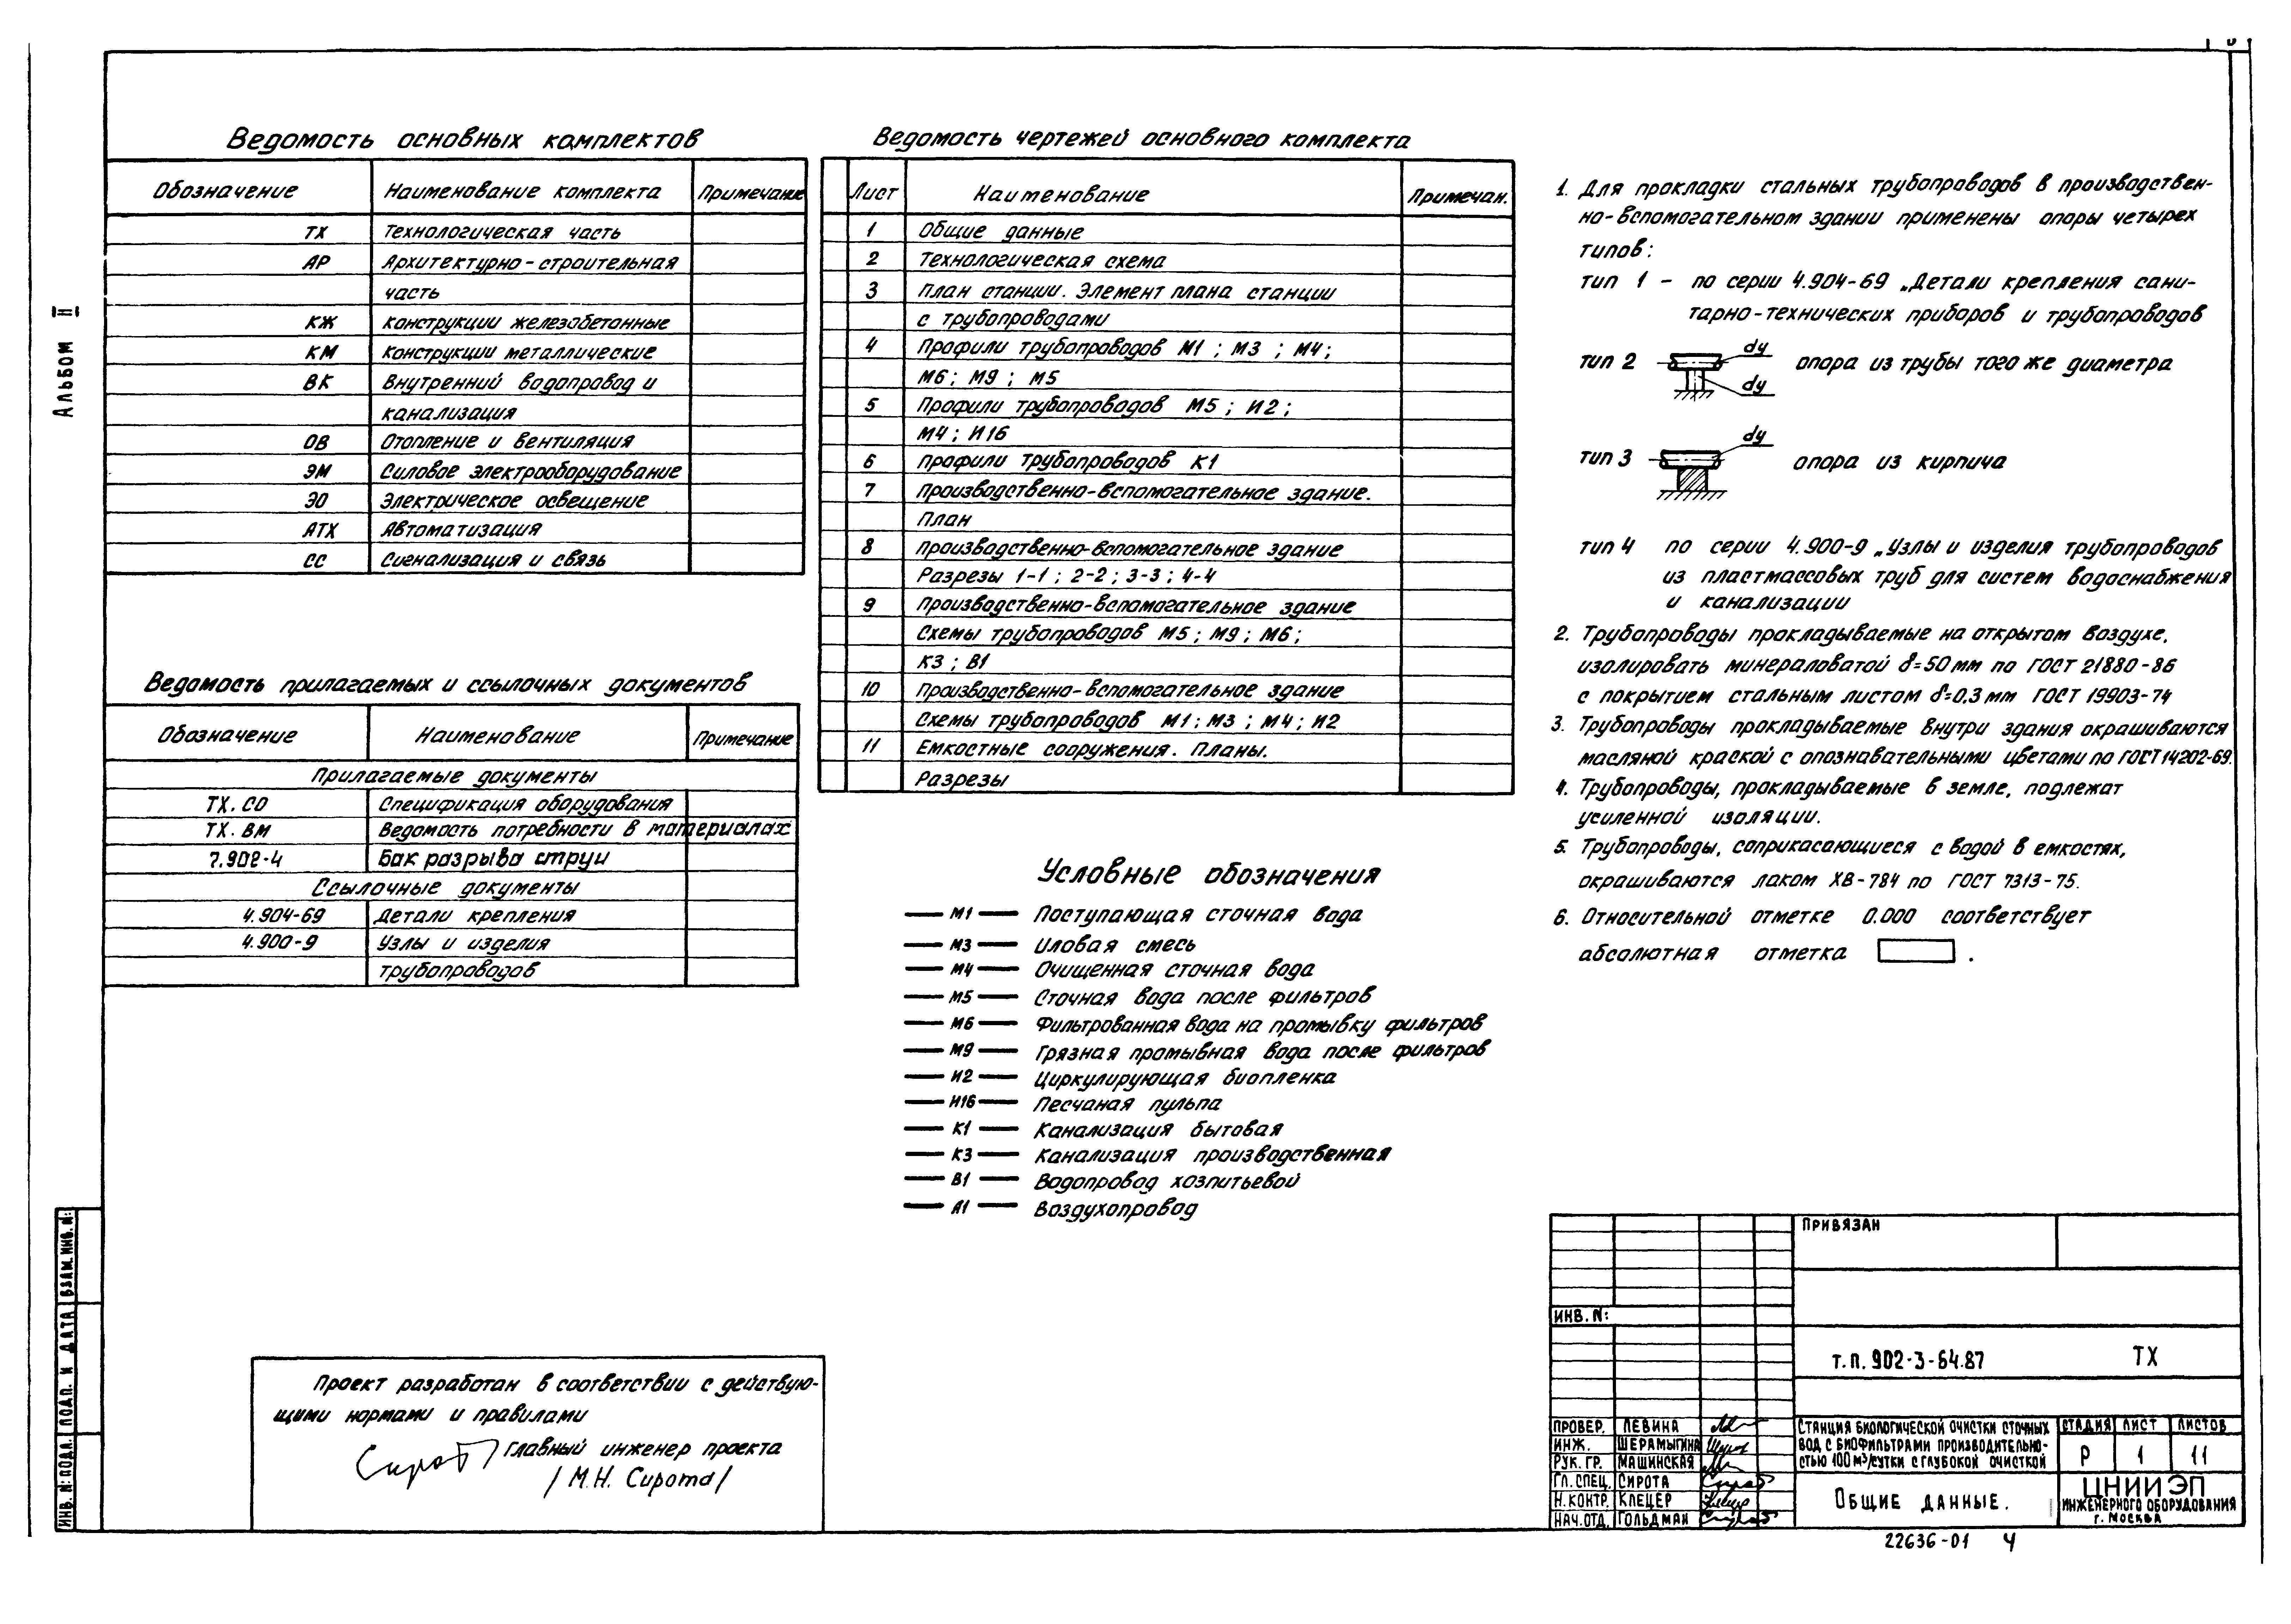 Альбом II
Ведомость основных комплектов
Обозначение Наименование комплекта Примечание
ТХ Технологическая часть
АР Архитектурно-строительная
часть
КЖ Конструкции железобетонные
КМ Конструкции металлические
ВК Внутренний водопровод и
канализация
ОВ Отопление и вентиляция
ЭМ Силовое электрооборудование
ЭО Электрическое освещение
АТХ Автоматизация
СС Сигнализация и связь
Ведомость прилагаемых и ссылочных документов
Обозначение Наименование Примечание
Прилагаемые документы
ТХ.СО Спецификация оборудования
ТХ.ВМ Ведомость потребности в материалах
7.902-4 Бак разрыва струи
Ссылочные документы
4.904-69 Детали крепления
4.900-9 Узлы и изделия
трубопроводов
Ведомость чертежей основного комплекта
Лист Наименование Примечан.
1 Общие данные
2 Технологическая схема
3 План станции. Элемент плана станции
с трубопроводами
4 Профили трубопроводов М1; М3; М4;
М6; М9; М5
5 Профили трубопроводов М5; И2;
М4; И16
6 Профили трубопроводов К1
7 Производственно-вспомогательное здание.
План
8 Производственно-вспомогательное здание
Разрезы 1-1; 2-2; 3-3; 4-4
9 Производственно-вспомогательное здание
Схемы трубопроводов М5; М9; М6;
К3; В1
10 Производственно-вспомогательное здание
Схемы трубопроводов М1; М3; М4; И2
11 Емкостные сооружения. Планы.
Разрезы
Условные обозначения
М1 Поступающая сточная вода
М3 Иловая смесь
М4 Очищенная сточная вода
М5 Сточная вода после фильтров
М6 Фильтрованная вода на промывку фильтров
М9 Грязная промывная вода после фильтров
И2 Циркулирующая биопленка
И16 Песчаная пульпа
К1 Канализация бытовая
К3 Канализация производственная
В1 Водопровод хозпитьевой
А1 Воздухопровод
1. Для прокладки стальных трубопроводов в производствен-
но-вспомогательном здании применены опоры четырех
типов:
тип 1 - по серии 4.904-69 „Детали крепления сани-
тарно-технических приборов и трубопроводов
тип 2 dу опора из трубы того же диаметра
dу
dу
тип 3 опора из кирпича
тип 4 по серии 4.900-9 „Узлы и изделия трубопроводов
из пластмассовых труб для систем водоснабжения
и канализации
2. Трубопроводы прокладываемые на открытом воздухе,
изолировать минераловатой δ=50мм по ГОСТ 21880-86
с покрытием стальным листом δ=0,3мм ГОСТ 19903-74
3. Трубопроводы прокладываемые внутри здания окрашиваются
масляной краской с опознавательными цветами по ГОСТ 14202-69.
4. Трубопроводы, прокладываемые в земле, подлежат
усиленной изоляции.
5. Трубопроводы, соприкасающиеся с водой в емкостях,
окрашиваются лаком ХВ-784 по ГОСТ 7313-75.
6. Относительной отметке 0.000 соответствует
абсолютная отметка .
Проект разработан в соответствии с действую-
щими нормами и правилами
Главный инженер проекта
/М.Н. Сирота/
ИНВ. N: ПОДЛ. ПОДП. И ДАТА ВЗАМ. ИНВ. N:
ПРИВЯЗАН
ИНВ. N:
т.п. 902-3-64.87 ТХ
ПРОВЕР. ЛЕВИНА
ИНЖ. ШЕРАМЫГИНА
РУК. ГР. МАШИНСКАЯ
ГЛ. СПЕЦ. СИРОТА
Н. КОНТР. КЛЕЦЕР
НАЧ. ОТД. ГОЛЬДМАН
СТАНЦИЯ БИОЛОГИЧЕСКОЙ ОЧИСТКИ СТОЧНЫХ
ВОД С БИОФИЛЬТРАМИ ПРОИЗВОДИТЕЛЬНО-
СТЬЮ 100 М³/СУТКИ С ГЛУБОКОЙ ОЧИСТКОЙ
СТАДИЯ ЛИСТ ЛИСТОВ
Р 1 11
ОБЩИЕ ДАННЫЕ.
ЦНИИЭП
ИНЖЕНЕРНОГО ОБОРУДОВАНИЯ
г. МОСКВА
22636-01 4